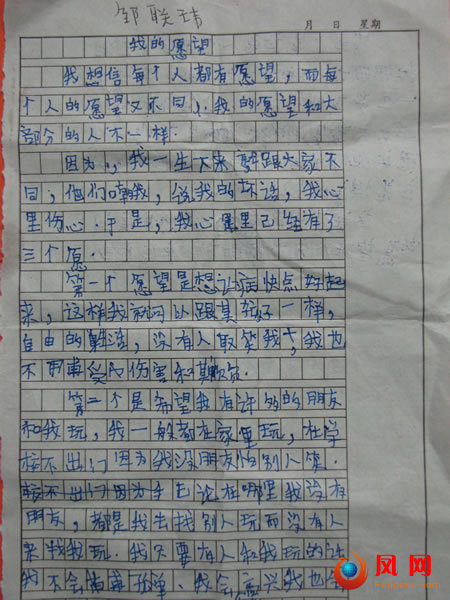 邹联玮
月 日 星期
我的愿望
我想信每个人都有愿望，而每
个人的愿望又不同，我的愿望和大
部分的人不一样.
因为，我一生下来就跟大家不
同，他们嘲我，说我的坏话，我心
里伤心.于是，我心里已经有了
三个愿.
第一个愿望是想让病快点好起
来，这样我就可以跟其较好一样，
自由的生活，没有人取笑我了，我也
不用再受到伤害和欺负.
第二个是希望我有许多的朋友
和我玩，我一般都在家里玩，在学
校不出门因为我没朋友怕别人笑.
校不出门因为 论在哪里我没有
朋友，都是我去找别人玩而没有人
来找我玩.我只要有人和我玩的话
我不会 孤单、我会高兴我也
凤网